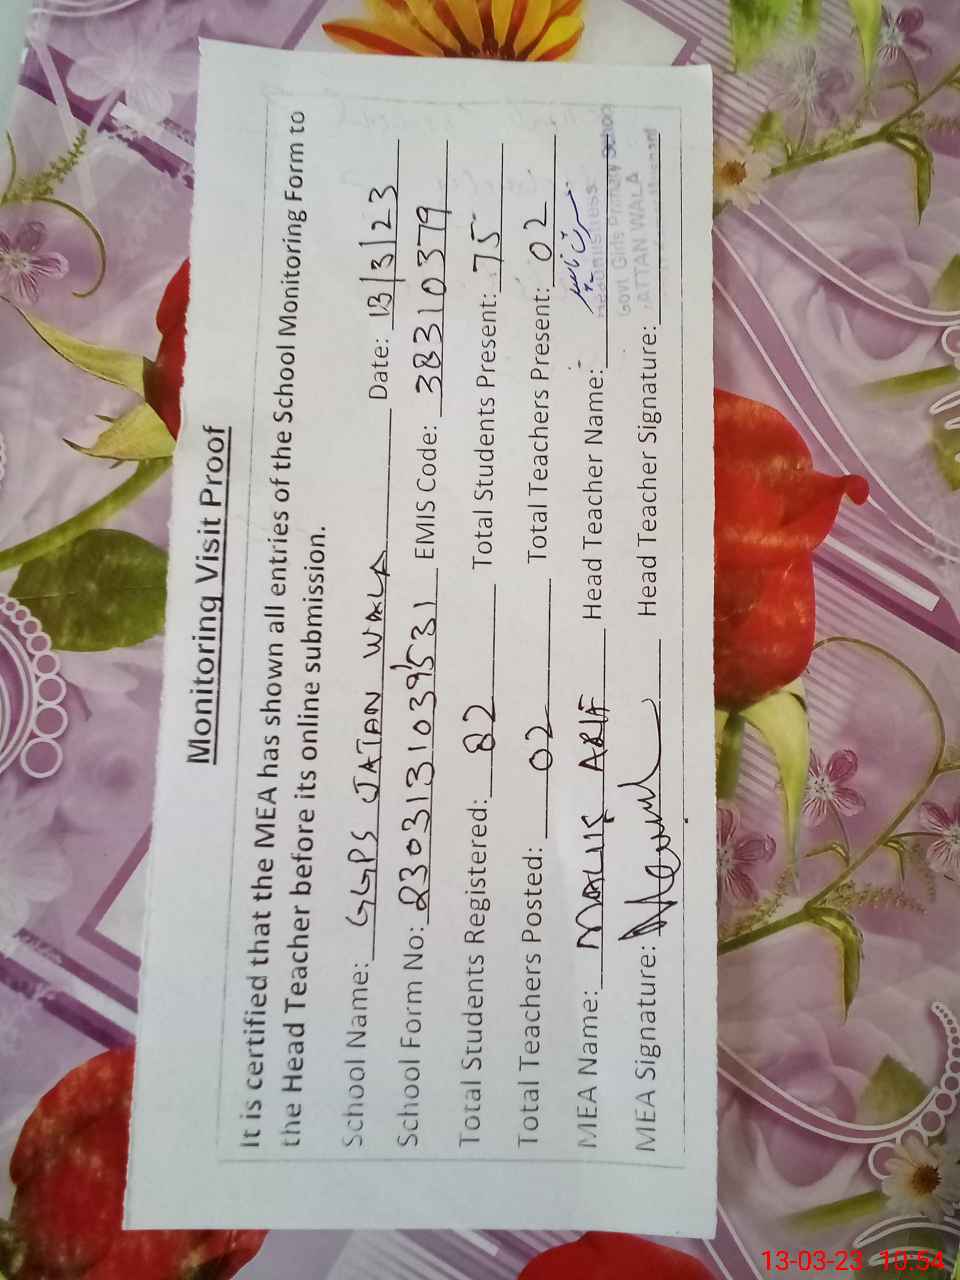 Monitoring Visit Proof
It is certified that the MEA has shown all entries of the School Monitoring Form to
the Head Teacher before its online submission.
School Name: GGPS JATAN WALA Date: 13/3/23
School Form No: 2303131039531 EMIS Code: 38310379
Total Students Registered: 82 Total Students Present: 75
Total Teachers Posted: 02 Total Teachers Present: 02
MEA Name: MALIK ARIF Head Teacher Name:
Headmistress
Govt Girls Primary School
JATTAN WALA
MEA Signature: Head Teacher Signature:
13-03-23 10:54